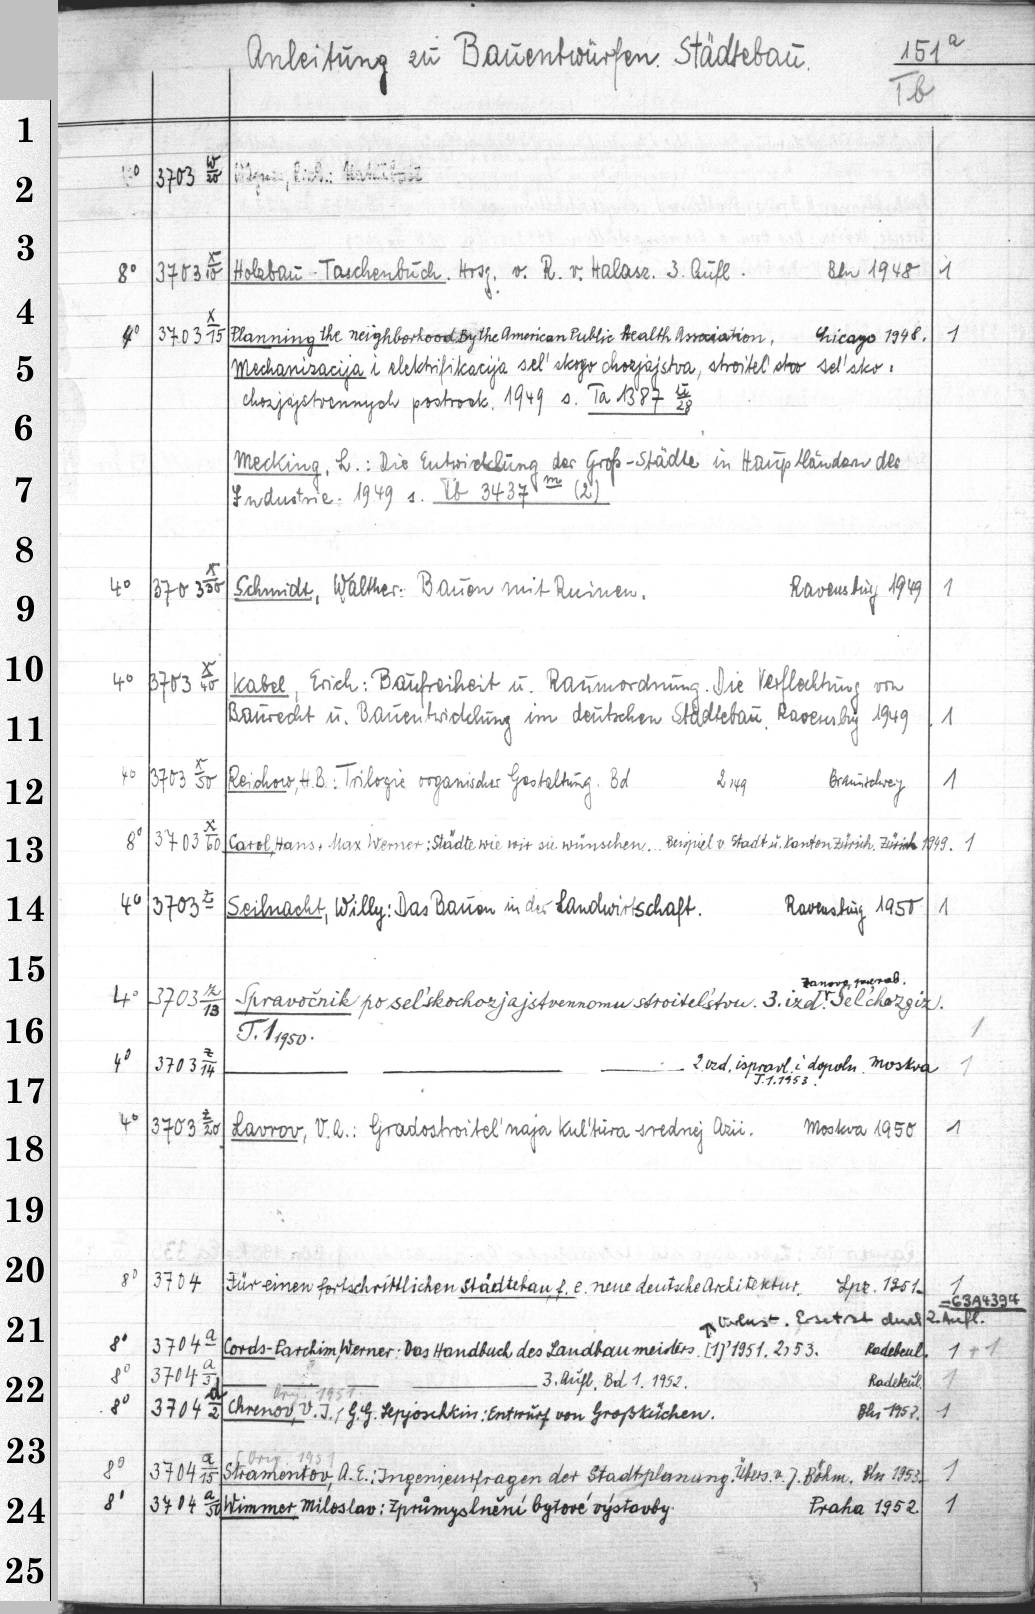 Anleitung zu Bauentwürfen. Städtebau. 151a
Tb
1
2
3
4
5
6
7
8
9
10
11
12
13
14
15
16
17
18
19
20
21
22
23
24
25
3703 w/20
8° 3703 x/10 Holzbau-Taschenbuch. Hrsg. v. R. v. Halasz. 3. Aufl. Bln 1948 1
4° 3703 x/15 Planning the neighborhood. By the American Public Health Association. Chicago 1948. 1
Mechanizacija i elektrifikacija sel'skogo chozjajstva, stroitel'stvo sel'sko-
chozjajstvennych postroek. 1949 s. Ta 1387
Mecking, L.: Die Entwicklung der Groß-Städte in Hauptländern der
Industrie. 1949 s. 3437 m (2)
4° 3703 x/30 Schmidt, Walther: Bauen mit Ruinen. Ravensburg 1949 1
4° 3703 x/40 Kabel, Erich: Baufreiheit u. Raumordnung. Die Verflechtung von
Baurecht u. Bauentwicklung im deutschen Städtebau. Ravensburg 1949 1
4° 3703 x/50 Reichow, H.B.: Trilogie organischer Gestaltung. Bd 2 1949 Braunschweig 1
8° 3703 x/60 Carol, Hans, Max Werner: Städte wie wir sie wünschen... Beispiel v. Stadt u. Kanton Zürich. Zürich 1949. 1
4° 3703 z Seilnacht, Willy: Das Bauen in der Landwirtschaft. Ravensburg 1950 1
zanovo pererab.
4° 3703 z/13 Spravočnik po sel'skochozjajstvennomu stroitel'stvu. 3. izd. Sel'chozgiz.
T. 1 1950. 1
4° 3703 z/14 2 izd. ispravl. i dopoln. Moskva 1
T. 1. 1953.
4° 3703 z/20 Lavrov, V.A.: Gradostroitel'naja kul'tura srednej Azii. Moskva 1950 1
8° 3704 Für einen fortschrittlichen Städtebau, f. e. neue deutsche Architektur. Lpz. 1951. 1
=63A4394
Verlust. Ersetzt durch 2. Aufl.
8° 3704 a Cords-Parchim, Werner: Das Handbuch des Landbaumeisters. [1] 1951. 2, 53. Radebeul. 1 + 1
8° 3704 a/1 3. Aufl. Bd 1. 1952. Radebeul 1
Orig. 1951.
8° 3704 a/2 Chrenov, V.I., G.G. Lepjoschkin: Entwurf von Großküchen. Bln 1952. 1
[Orig. 1951
8° 3704 a/15 Stramentov, A.E.: Ingenieurfragen der Stadtplanung. Übers. v. J. Böhm. Bln 1953 1
8° 3704 a/50 Wimmer, Miloslav: Zprůmyslnění bytové výstavby. Praha 1952. 1